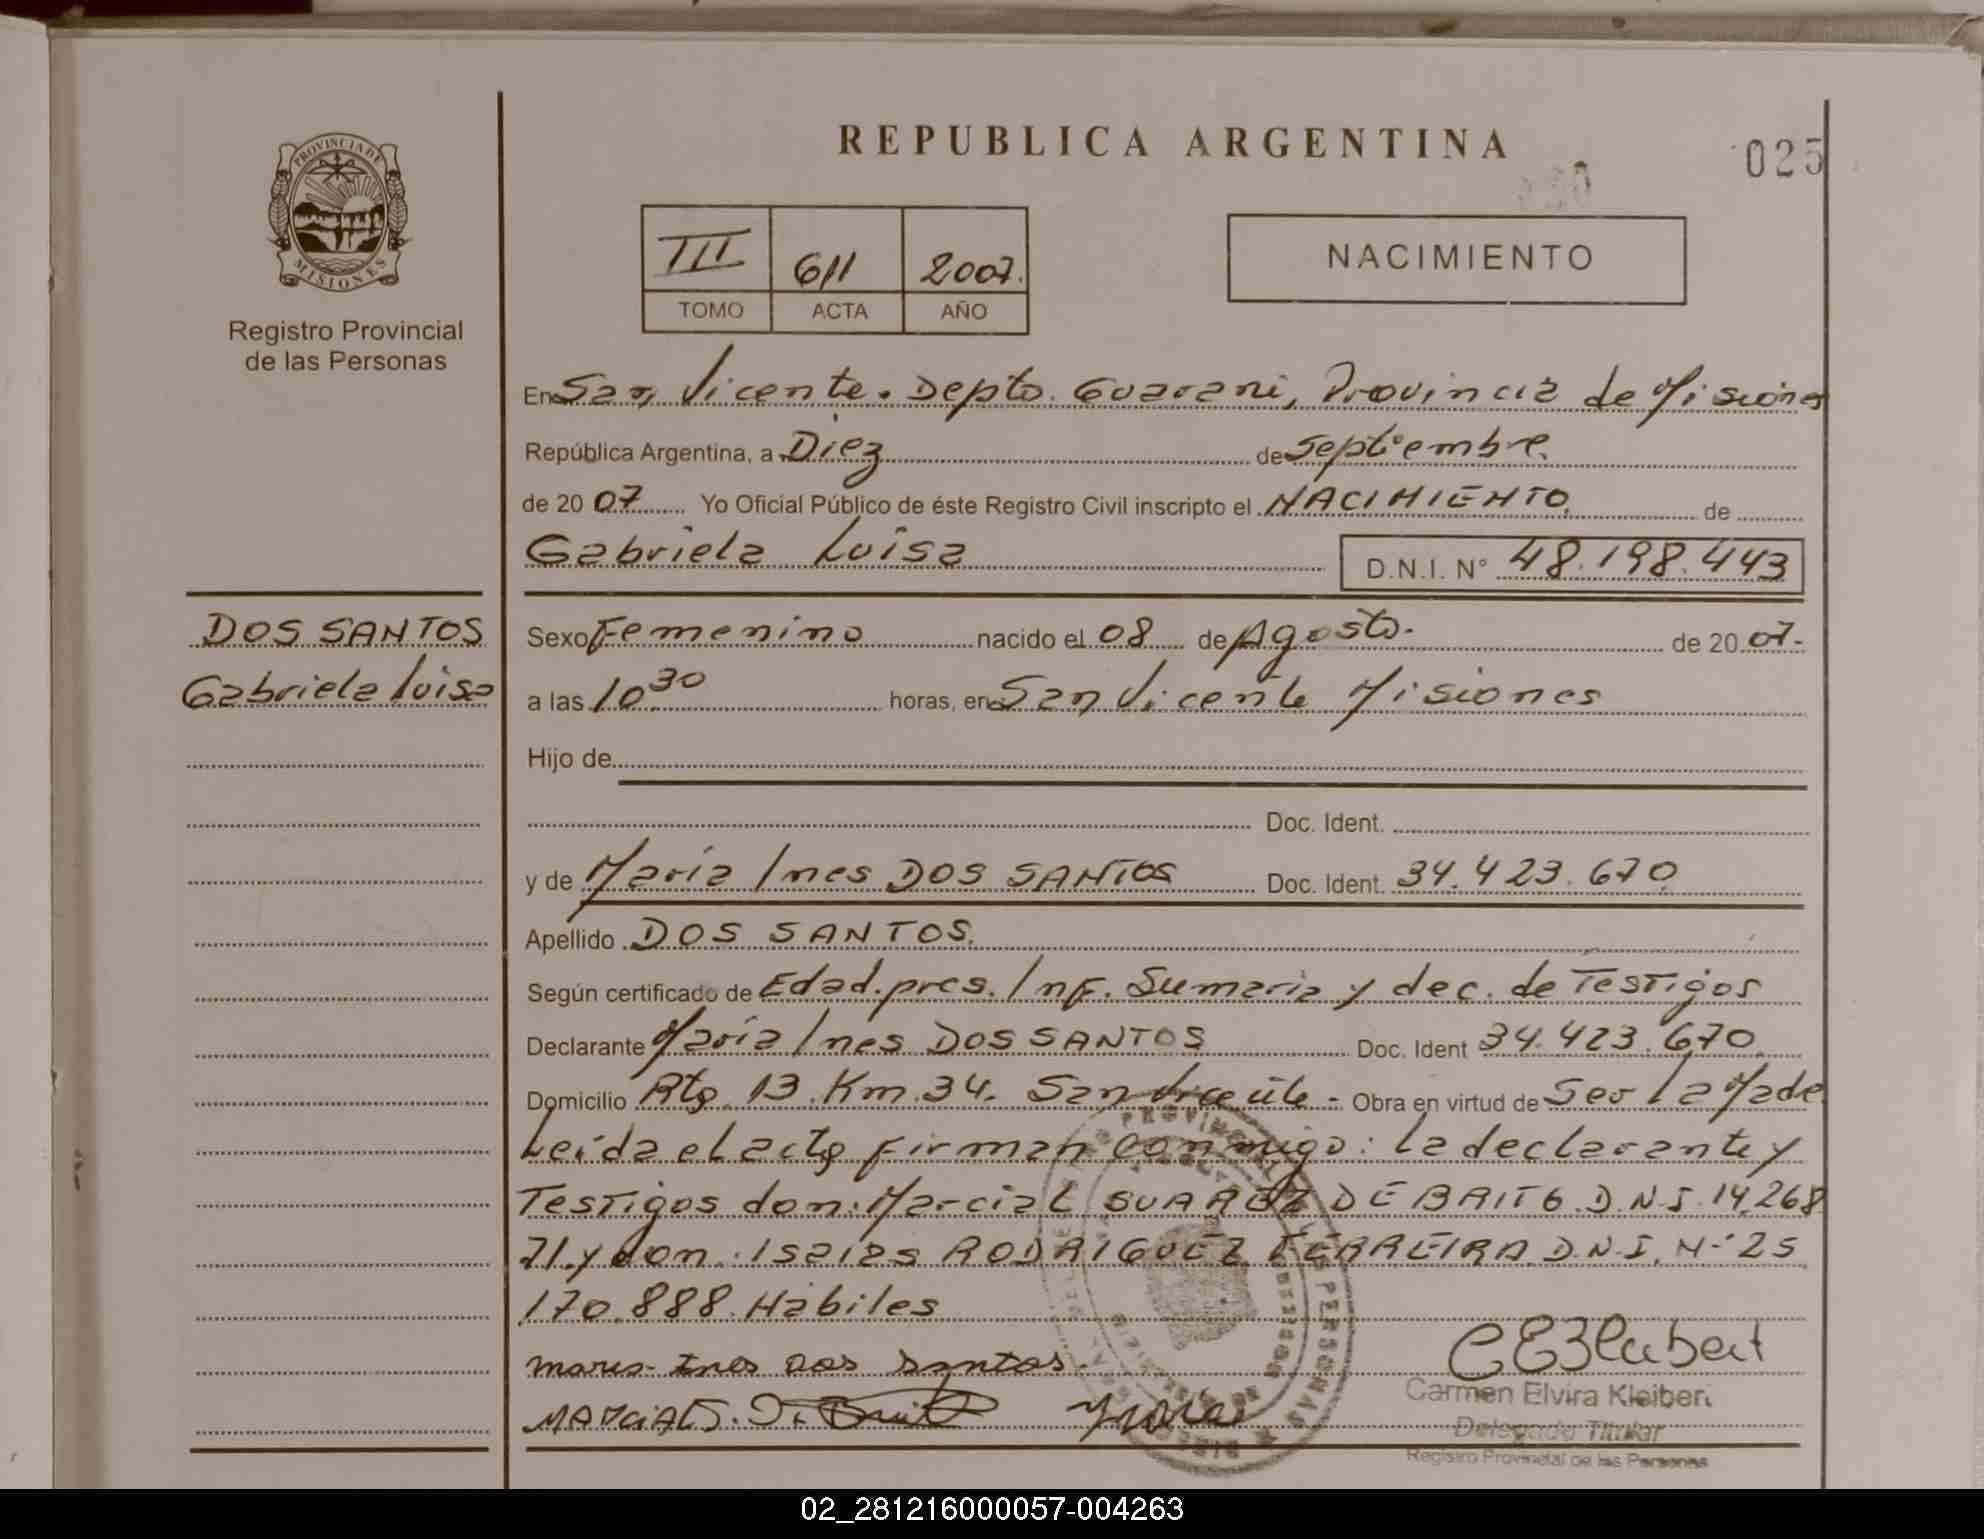 REPUBLICA ARGENTINA
025
PROVINCIA DE
MISIONES
Registro Provincial
de las Personas
III 611 2007.
TOMO ACTA AÑO
NACIMIENTO
En San Vicente. Depto. Guarani, Provincia de Misiones
República Argentina, a Diez de Septiembre.
de 20 07 Yo Oficial Público de éste Registro Civil inscripto el NACIMIENTO. de
Gabriela Luisa D.N.I. N° 48.198.443
DOS SANTOS
Gabriela Luisa
Sexo Femenino nacido el 08 de Agosto. de 20 07.-
a las 10.30 horas, en San Vicente Misiones
Hijo de
Doc. Ident.
y de Maria Ines DOS SANTOS Doc. Ident. 34.423.670.
Apellido DOS SANTOS.
Según certificado de Edad.pres. Inf. Sumaria y dec. de Testigos
Declarante Maria Ines DOS SANTOS Doc. Ident 34.423.670.
Domicilio Rta. 13. Km. 34. San Vicente - Obra en virtud de Ser La Madre.
Leída el acta firman conmigo: La declarante y
Testigos don: Marcial SUAREZ DE BRITO. D.N.I. 14.268
71. y don: Isaias RODRIGUEZ FERREIRA. D.N.I. N-° 25
170.888. Habiles
maria Ines Dos Santos.
MARCIAL S. D. Brito
Carmen Elvira Kleibert
Delegado Titular
Registro Provincial de las Personas
02_281216000057-004263